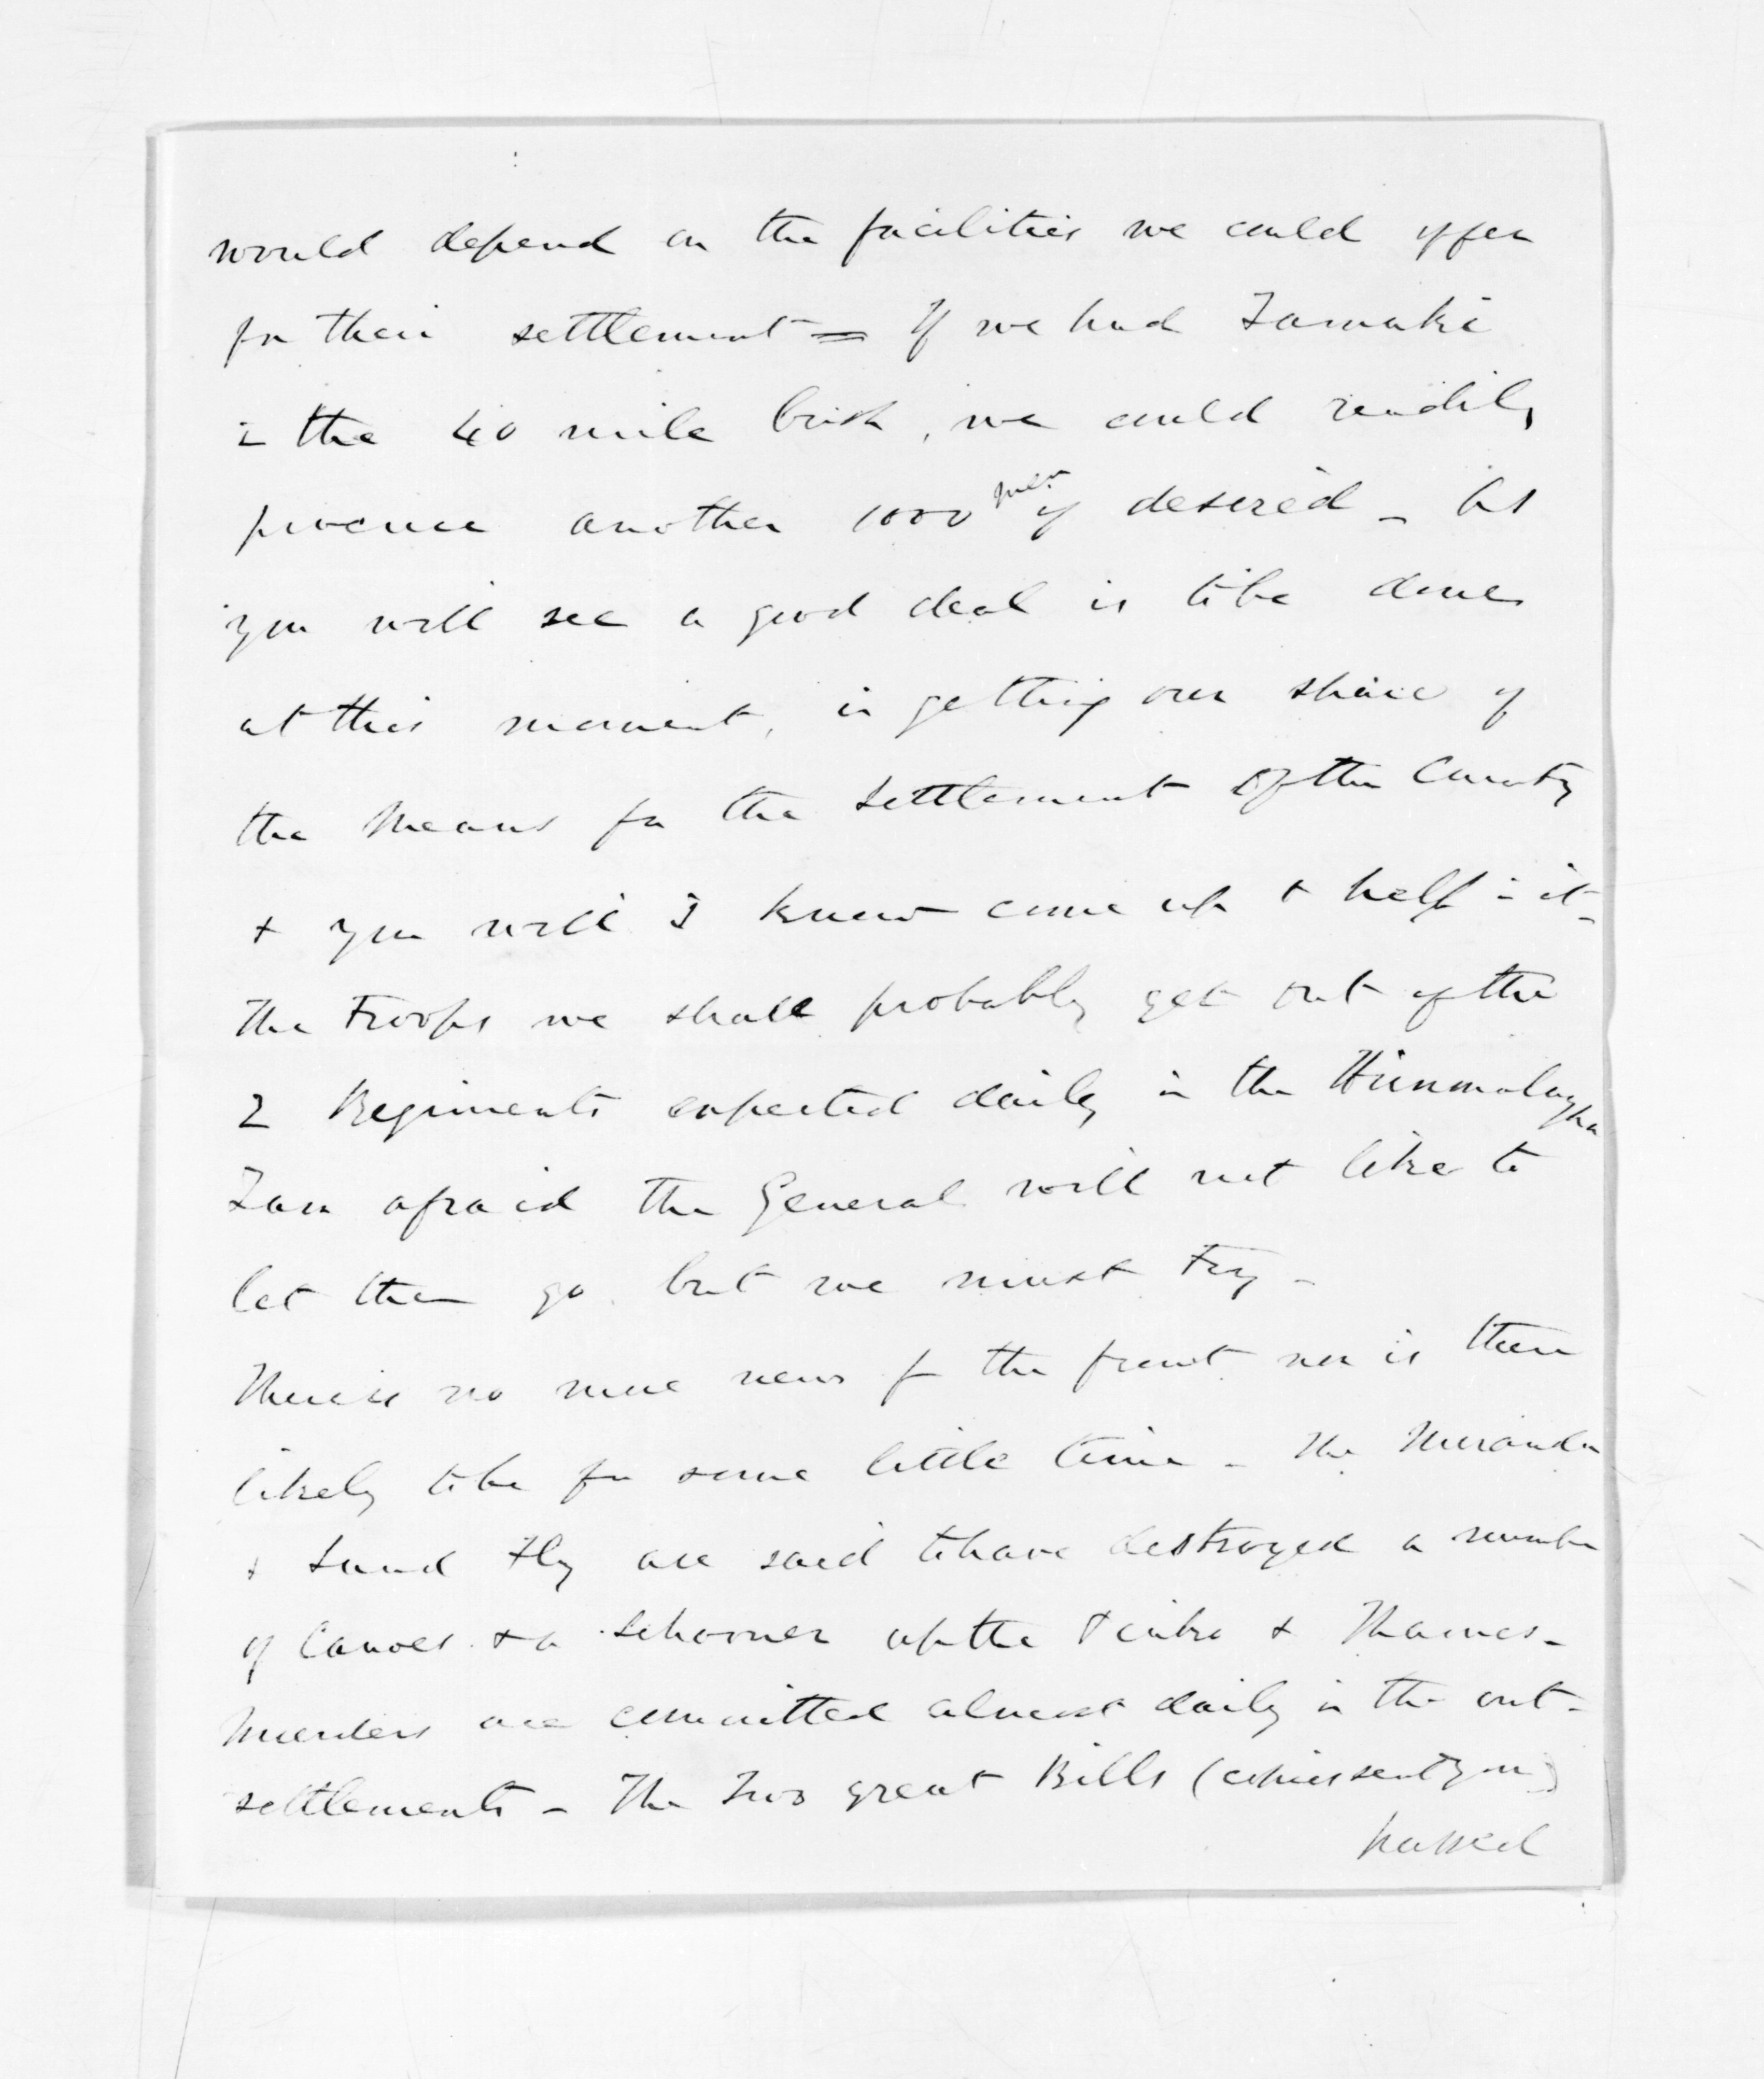 would depend on the facilities we could offer
for their settlement = If we had Tamaki
in the 40 mile bush, we could readily
procure another 1000 men if desired - As
you will see a good deal is to be done
at this moment, in getting our share of
the Means for the Settlement of the Country
+ you will I know come up + help in it -
The Troops we shall probably get out of the
2 Regiments expected daily in the Himmalaya
I am afraid the General will not like to
let them go but we must try -
There is no more news fm the front nor is there
likely to be for some little time - The Miranda
+ Sand Fly are said to have destroyed a number
of Canoes + a Schooner up the Piako + Thames -
Murders are committed almost daily in the out-
settlements - The Two great Bills (copies sent you)
passed